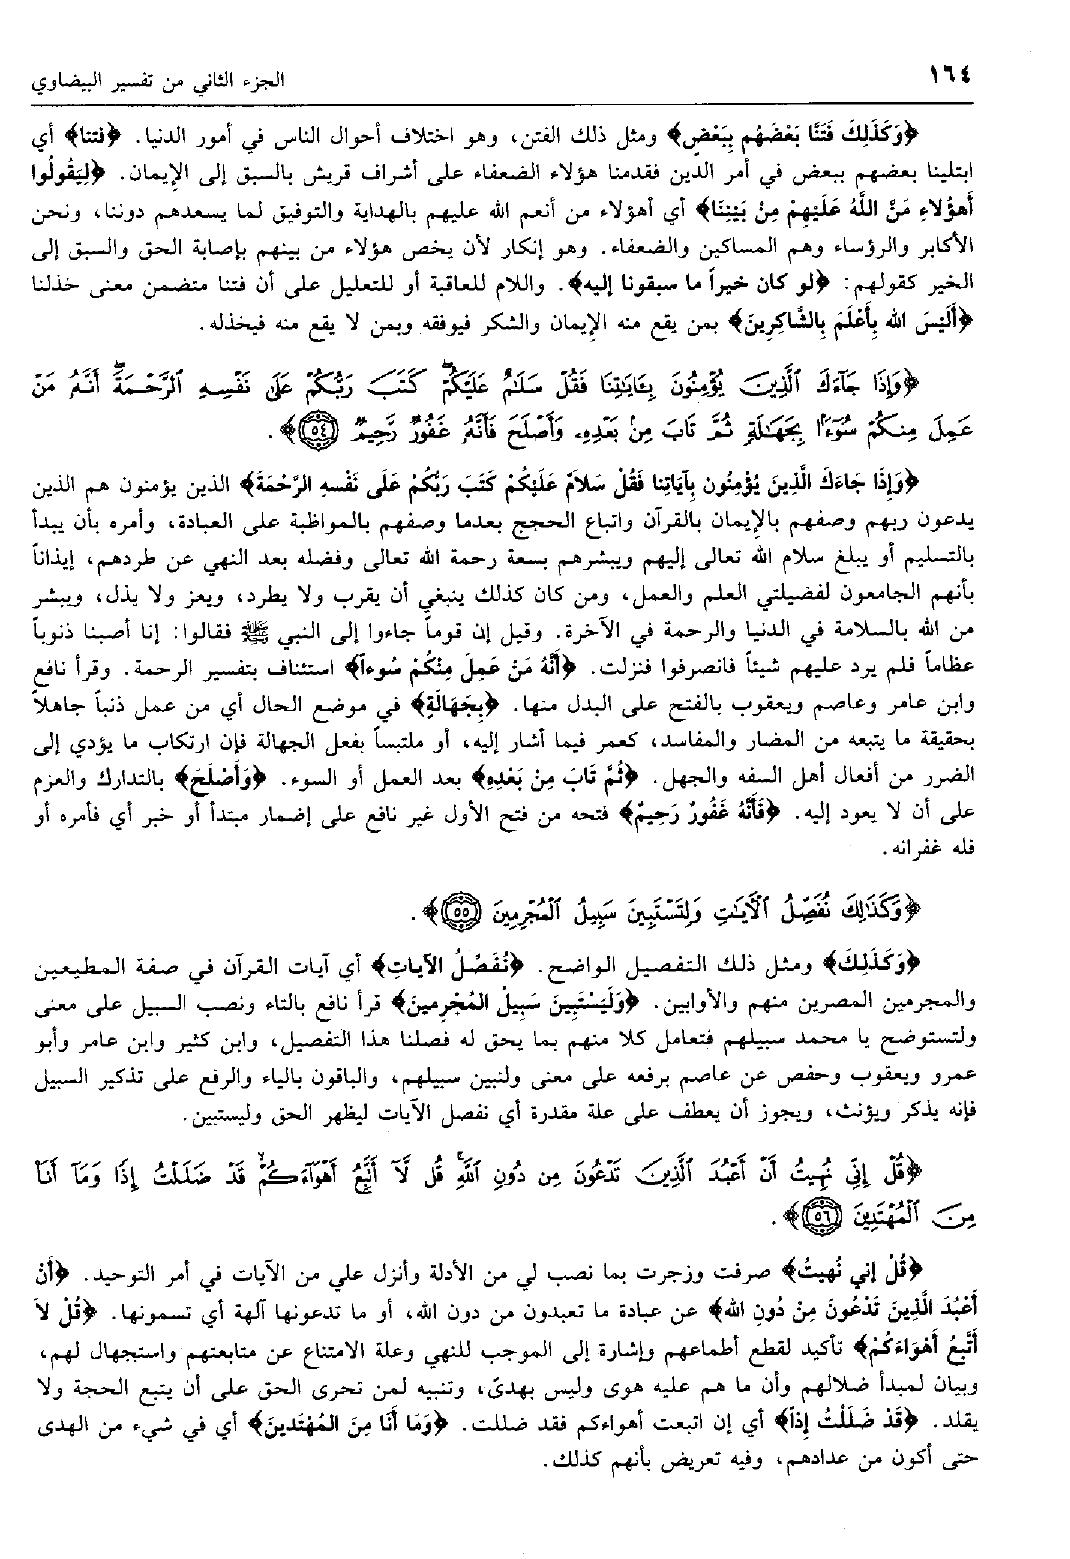 ١٦٤
الجزء الثاني من تفسير البيضاوي
﴿وَكَذَلِكَ فَتَنَّا بَعْضَهُم بِبَعْضٍ﴾ ومثل ذلك الفتن، وهو اختلاف أحوال الناس في أمور الدنيا. ﴿فتنا﴾ أي
ابتلينا بعضهم ببعض في أمر الدين فقدمنا هؤلاء الضعفاء على أشراف قريش بالسبق إلى الإيمان. ﴿لِيَقُولُوا
أَهؤُلاءِ مَنَّ اللَّهُ عَلَيهِمْ مِنْ بَيْنِنَا﴾ أي أهؤلاء من أنعم الله عليهم بالهداية والتوفيق لما يسعدهم دوننا، ونحن
الأكابر والرؤساء وهم المساكين والضعفاء. وهو إنكار لأن يخص هؤلاء من بينهم بإصابة الحق والسبق إلى
الخير كقولهم: ﴿لو كان خيراً ما سبقونا إليه﴾. واللام للعاقبة أو للتعليل على أن فتنا متضمن معنى خذلنا
﴿أَلَيْسَ الله بِأَعْلَمَ بِالشَّاكِرِينَ﴾ بمن يقع منه الإيمان والشكر فيوفقه وبمن لا يقع منه فيخذله.
﴿وَإِذَا جَآءَكَ ٱلَّذِينَ يُؤْمِنُونَ بِـَٔايَـٰتِنَا فَقُلْ سَلَـٰمٌ عَلَيْكُمْ ۖ كَتَبَ رَبُّكُمْ عَلَىٰ نَفْسِهِ ٱلرَّحْمَةَ ۖ أَنَّهُۥ مَنْ
عَمِلَ مِنكُمْ سُوٓءًۢا بِجَهَـٰلَةٍ ثُمَّ تَابَ مِنۢ بَعْدِهِۦ وَأَصْلَحَ فَأَنَّهُۥ غَفُورٌ رَّحِيمٌ ﴿٥٤﴾﴾.
﴿وَإِذَا جَاءَكَ الَّذِينَ يُؤْمِنُون بِآيَاتِنا فَقُلْ سَلاَمٌ عَلَيْكُمْ كَتَبَ رَبُّكُمْ عَلَى نَفْسِهِ الرَّحْمَةَ﴾ الذين يؤمنون هم الذين
يدعون ربهم وصفهم بالإيمان بالقرآن واتباع الحجج بعدما وصفهم بالمواظبة على العبادة، وأمره بأن يبدأ
بالتسليم أو يبلغ سلام الله تعالى إليهم ويبشرهم بسعة رحمة الله تعالى وفضله بعد النهي عن طردهم، إيذاناً
بأنهم الجامعون لفضيلتي العلم والعمل، ومن كان كذلك ينبغي أن يقرب ولا يطرد، ويعز ولا يذل، ويبشر
من الله بالسلامة في الدنيا والرحمة في الآخرة. وقيل إن قوماً جاءوا إلى النبي ﷺ فقالوا: إنا أصبنا ذنوباً
عظاماً فلم يرد عليهم شيئاً فانصرفوا فنزلت. ﴿أَنَّهُ مَنْ عَمِلَ مِنْكُمْ سُوءاً﴾ استئناف بتفسير الرحمة. وقرأ نافع
وابن عامر وعاصم ويعقوب بالفتح على البدل منها. ﴿بِجَهَالَةٍ﴾ في موضع الحال أي من عمل ذنباً جاهلاً
بحقيقة ما يتبعه من المضار والمفاسد، كعمر فيما أشار إليه، أو ملتبساً بفعل الجهالة فإن ارتكاب ما يؤدي إلى
الضرر من أفعال أهل السفه والجهل. ﴿ثُمَّ تَابَ مِنْ بَعْدِهِ﴾ بعد العمل أو السوء. ﴿وَأَصْلَحَ﴾ بالتدارك والعزم
على أن لا يعود إليه. ﴿فَأَنَّهُ غَفُورٌ رَحِيمٌ﴾ فتحه من فتح الأول غير نافع على إضمار مبتدأ أو خبر أي فأمره أو
فله غفرانه.
﴿وَكَذَٰلِكَ نُفَصِّلُ ٱلْآيَـٰتِ وَلِتَسْتَبِينَ سَبِيلُ ٱلْمُجْرِمِينَ ﴿٥٥﴾﴾.
﴿وَكَذَلِكَ﴾ ومثل ذلك التفصيل الواضح. ﴿نُفَصِّلُ الآيَاتِ﴾ أي آيات القرآن في صفة المطيعين
والمجرمين المصرين منهم والأوابين. ﴿وَلِيَسْتَبِينَ سَبِيلُ المُجْرِمينَ﴾ قرأ نافع بالتاء ونصب السبيل على معنى
ولتستوضح يا محمد سبيلهم فتعامل كلا منهم بما يحق له فصلنا هذا التفصيل، وابن كثير وابن عامر وأبو
عمرو ويعقوب وحفص عن عاصم برفعه على معنى ولنبين سبيلهم، والباقون بالياء والرفع على تذكير السبيل
فإنه يذكر ويؤنث، ويجوز أن يعطف على علة مقدرة أي نفصل الآيات ليظهر الحق وليستبين.
﴿قُلْ إِنِّى نُهِيتُ أَنْ أَعْبُدَ ٱلَّذِينَ تَدْعُونَ مِن دُونِ ٱللَّهِ ۚ قُل لَّآ أَتَّبِعُ أَهْوَآءَكُمْ ۙ قَدْ ضَلَلْتُ إِذًا وَمَآ أَنَا۠
مِنَ ٱلْمُهْتَدِينَ ﴿٥٦﴾﴾.
﴿قُلْ إِني نُهِيتُ﴾ صرفت وزجرت بما نصب لي من الأدلة وأنزل علي من الآيات في أمر التوحيد. ﴿أَنْ
أَعْبُدَ الَّذِينَ تَدْعُونَ مِنْ دُونِ الله﴾ عن عبادة ما تعبدون من دون الله، أو ما تدعونها آلهة أي تسمونها. ﴿قُلْ لاَ
أَتَّبِعُ أَهْوَاءَكُمْ﴾ تأكيد لقطع أطماعهم وإشارة إلى الموجب للنهي وعلة الامتناع عن متابعتهم واستجهال لهم،
وبيان لمبدأ ضلالهم وأن ما هم عليه هوى وليس بهدىً، وتنبيه لمن تحرى الحق على أن يتبع الحجة ولا
يقلد. ﴿قَدْ ضَلَلْتُ إِذاً﴾ أي إن اتبعت أهواءكم فقد ضللت. ﴿وَمَا أَنَا مِنَ المُهْتَدينَ﴾ أي في شيء من الهدى
حتى أكون من عدادهم، وفيه تعريض بأنهم كذلك.